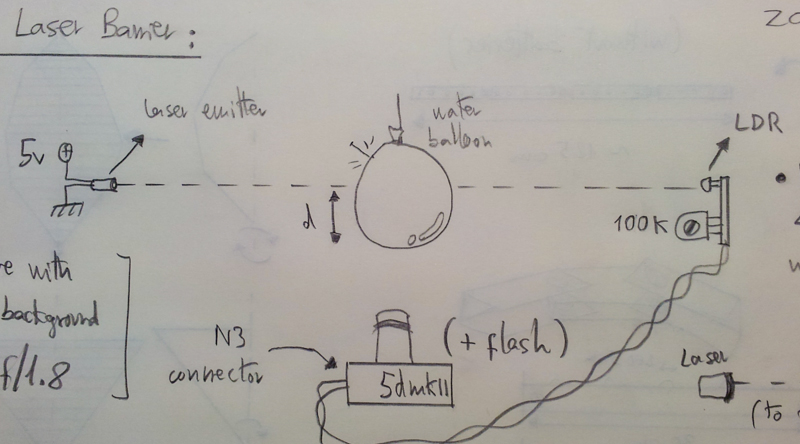 Laser Barrier:
laser emitter
5v
water
balloon
LDR
d
100K
re with
background
f/1.8
N3
connector
(+ flash)
5dmkII
Laser
(to